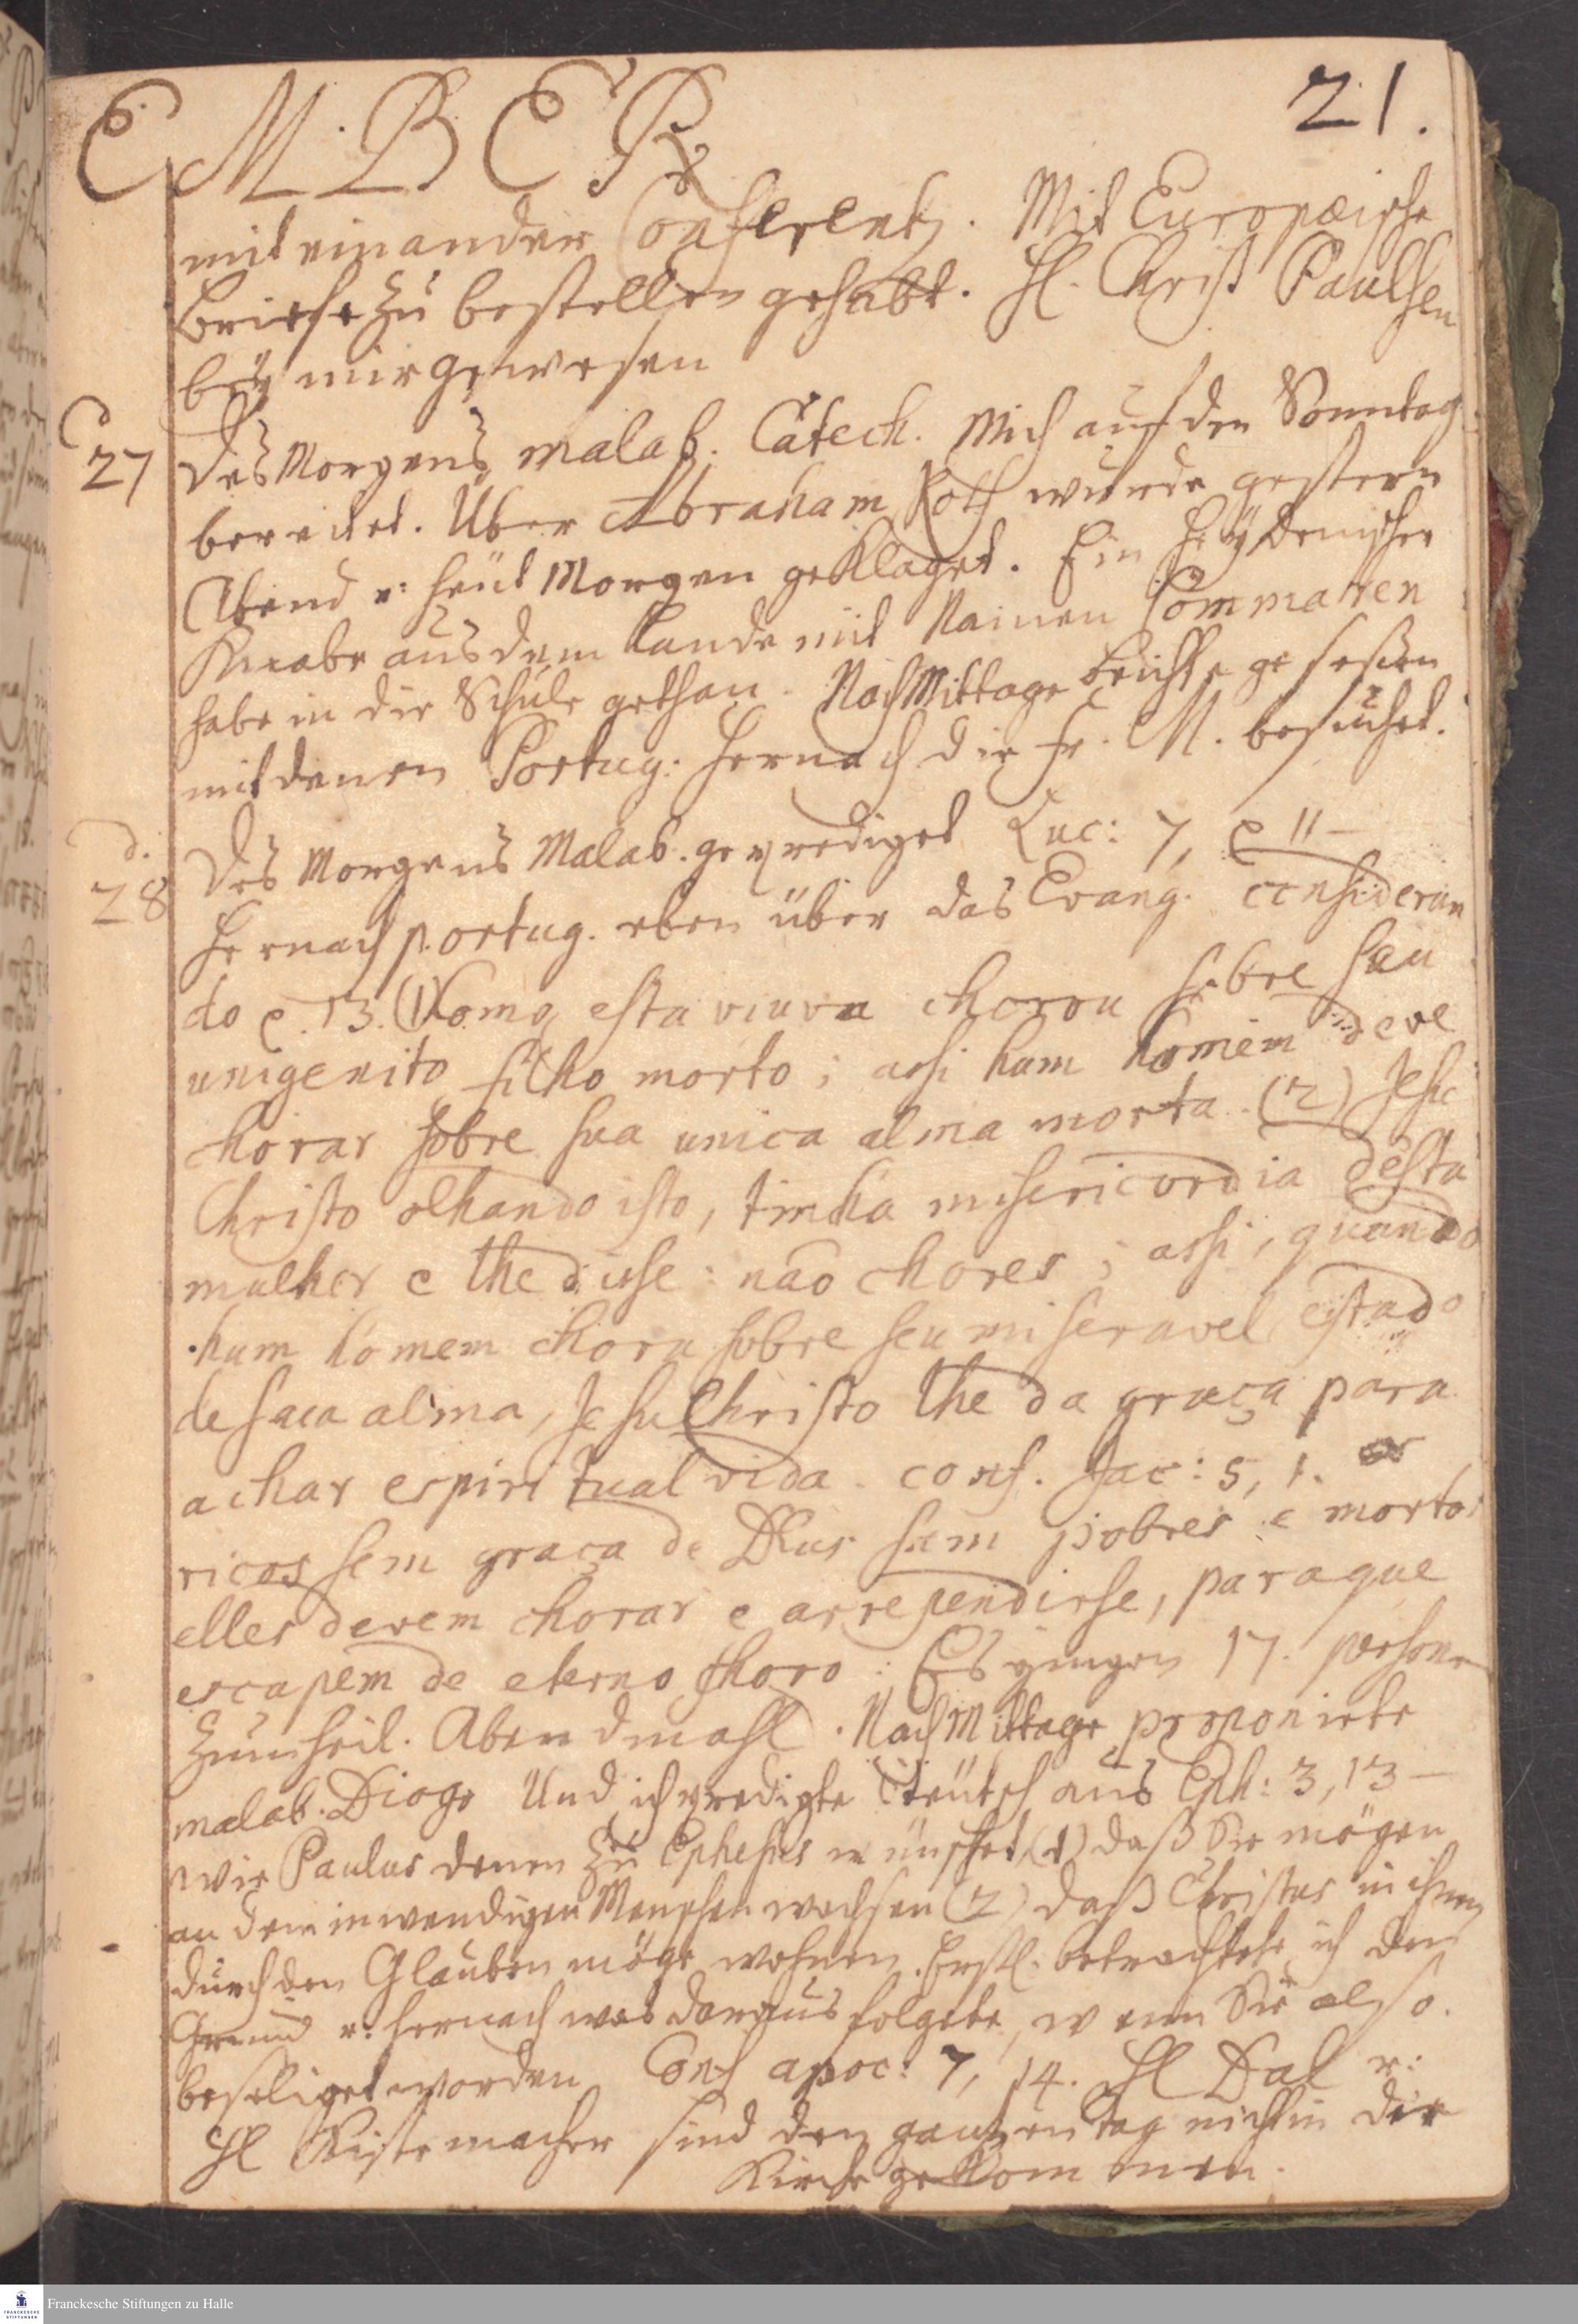 21.
E M B E R
mit einander Conferentz. Mit Europæische
Briefe zu bestellen gehabt. H. Christ Paulsen
beÿ mir gewesen
27 Des Morgens malab. Catech. Mich auf den Sonntag
bereitet. Über Abraham Roth wurde gestern
Abend u: heut Morgen geklaget. Ein heÿdenischer
Knabe aus dem Lande mit Namen
habe in die Schule gethan. Nach Mittage Beichte geseßen
mit denen Portug: hernach die Fr. M. besuchet.
d.
28 Des Morgens Malab. geprediget Luc: 7, 11–
hernach portug. eben über das Evang. consideran
do 13. (1) Como esta viuva chorou sobre seu
unigenito filho morto; assi hum homem deve
chorar sobre sua unica alma morta. (2) Jesu
Christo olhando isto, tinha misericordia desta
mulher e lhe disse: não chores; assi, quando
hum homem chora sobre seu miseravel estado
de sua alma, Jesu Christo lhe da graça para
achar espiritual vida. conf. Jac: 5, 1.
ricos sem graça de Deus sam pobres e mortos
elles devem chorar e arrependirse, paraque
escapem de eterno choro: Es gingen 17. persone
zum heil. Abendmahl. Nach Mittage proponirte
malab. Diogo Und ich predigte teütsch aus Eph: 3, 13–
wie Paulus denen zu Ephesus wünschet, (1) daß Sie mögen
an dem inwendigen Menschen wachsen (2) daß Christus in ihnen
durch den Glauben möge wohnen. Erstl. betrachtete ich den
Grund u: hernach was daraus folgete, wenn Sie also
beseliget worden Conf apoc: 7, 14. H Dal u:
H Kistemacher sind den gantzen Tag nicht in die
Kirche gekommen.
Franckesche Stiftungen zu Halle